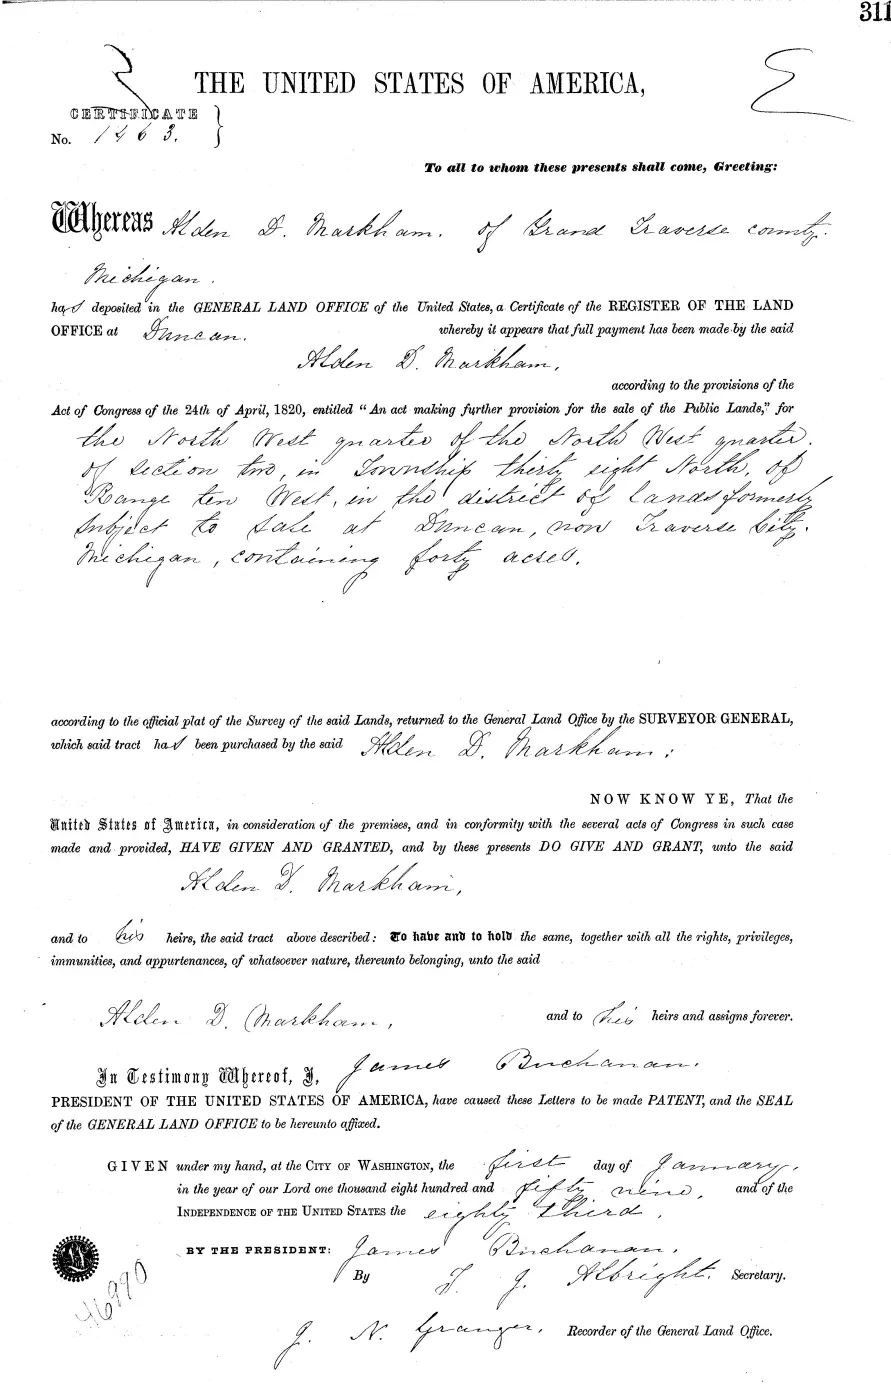 311
THE UNITED STATES OF AMERICA,
CERTIFICATE
No. 1463.
To all to whom these presents shall come, Greeting:
Whereas Alden D. Markham. of Grand Traverse county.
Michigan.
has deposited in the GENERAL LAND OFFICE of the United States, a Certificate of the REGISTER OF THE LAND
OFFICE at Duncan. whereby it appears that full payment has been made by the said
Alden D. Markham,
according to the provisions of the
Act of Congress of the 24th of April, 1820, entitled "An act making further provision for the sale of the Public Lands," for
the North West quarter of the North West quarter.
of section two, in Township thirty eight North, of
Range ten West, in the district of lands formerly
subject to sale at Duncan, now Traverse City.
Michigan, containing forty acres.
according to the official plat of the Survey of the said Lands, returned to the General Land Office by the SURVEYOR GENERAL,
which said tract has been purchased by the said Alden D. Markham;
NOW KNOW YE, That the
United States of America, in consideration of the premises, and in conformity with the several acts of Congress in such case
made and provided, HAVE GIVEN AND GRANTED, and by these presents DO GIVE AND GRANT, unto the said
Alden D. Markham,
and to his heirs, the said tract above described: To have and to hold the same, together with all the rights, privileges,
immunities, and appurtenances, of whatsoever nature, thereunto belonging, unto the said
Alden D. Markham, and to his heirs and assigns forever.
In Testimony Whereof, I, James Buchanan.
PRESIDENT OF THE UNITED STATES OF AMERICA, have caused these Letters to be made PATENT, and the SEAL
of the GENERAL LAND OFFICE to be hereunto affixed.
GIVEN under my hand, at the CITY OF WASHINGTON, the first day of January,
in the year of our Lord one thousand eight hundred and fifty nine, and of the
INDEPENDENCE OF THE UNITED STATES the eighty third.
BY THE PRESIDENT: James Buchanan.
By J. J. Albright. Secretary.
46990
J. N. Granger, Recorder of the General Land Office.